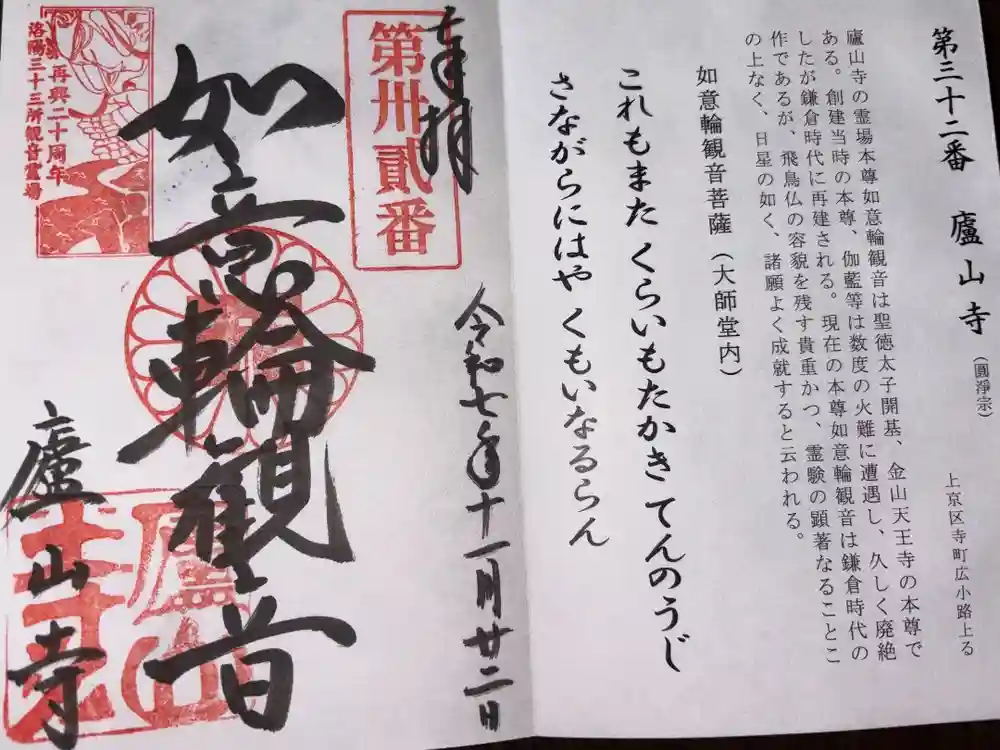 第三十二番 廬山寺（圓淨宗）
上京区寺町広小路上る
廬山寺の霊場本尊如意輪観音は聖徳太子開基、金山天王寺の本尊で
ある。創建当時の本尊、伽藍等は数度の火難に遭遇し、久しく廃絶
したが鎌倉時代に再建される。現在の本尊如意輪観音は鎌倉時代の
作であるが、飛鳥仏の容貌を残す貴重かつ、霊験の顕著なることこ
の上なく、日星の如く、諸願よく成就すると云われる。
如意輪観音菩薩（大師堂内）
これもまた くらいもたかき てんのうじ
さながらにはや くもいなるらん
奉拝
令和七年十一月廿二日
第卅貳番
如意輪観音
廬山寺
廬山寺
再興二十周年
洛陽三十三所観音霊場